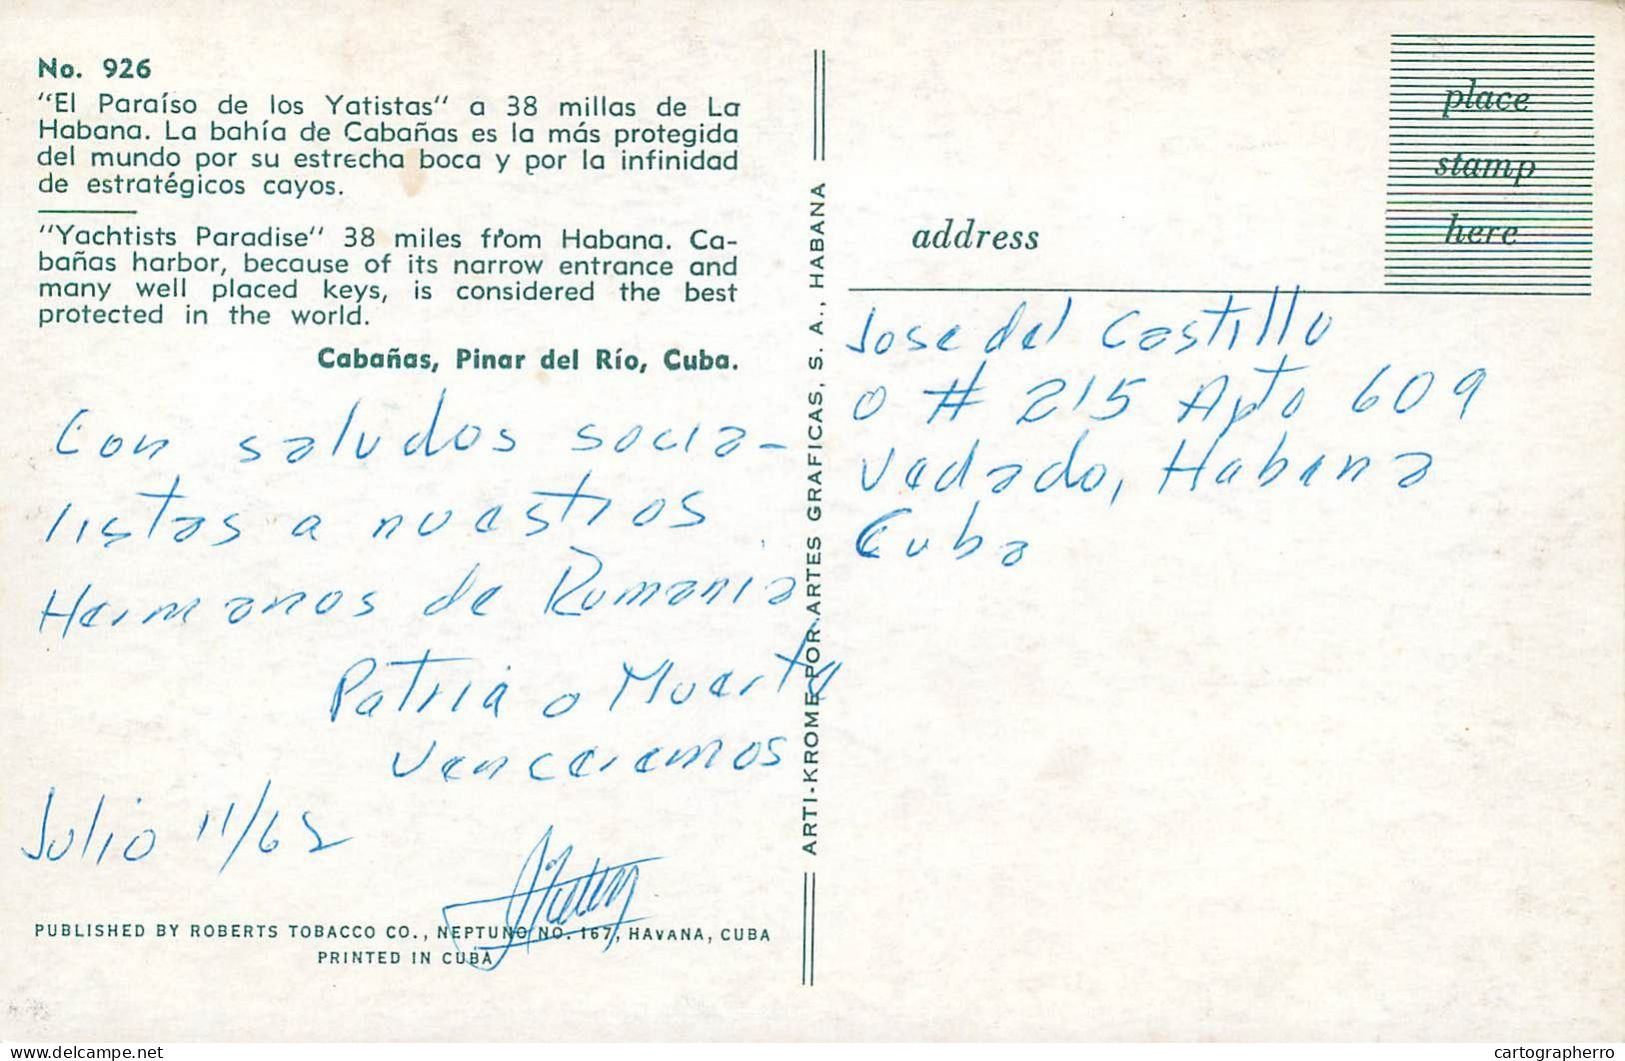 No. 926
"El Paraíso de los Yatistas" a 38 millas de La
Habana. La bahía de Cabañas es la más protegida
del mundo por su estrecha boca y por la infinidad
de estratégicos cayos.
"Yachtists Paradise" 38 miles from Habana. Ca-
bañas harbor, because of its narrow entrance and
many well placed keys, is considered the best
protected in the world.
Cabañas, Pinar del Río, Cuba.
Con saludos socia-
listas a nuestros
Hermanos de Rumania
Patria o Muerte
Venceremos
Julio 11/62
PUBLISHED BY ROBERTS TOBACCO CO., NEPTUNO NO. 167, HAVANA, CUBA
PRINTED IN CUBA
ARTI-KROME POR ARTES GRAFICAS, S. A., HABANA
place
stamp
here
address
Jose del Castillo
O # 215 Apto 609
Vedado, Habana
Cuba
cartographerro